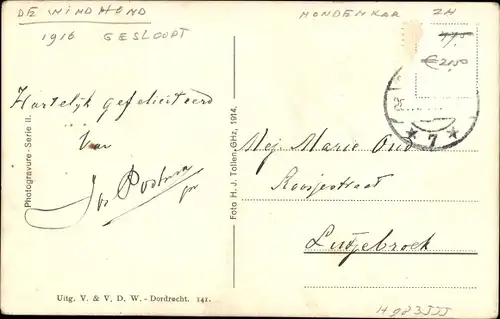 DE WINDHOND
1916 GESLOOPT
MONDENKAR ZH
17,50
€ 21,50
Hartelijk gefeliciteerd
Van
Jos Postma
Photogravure - Serie II.
Foto H. J. Tollens GHz, 1914.
7
Mej. Marie Oud
Roosjestraat
Lutjebroek
Uitg. V. & V. D. W. - Dordrecht. 141.
H983III